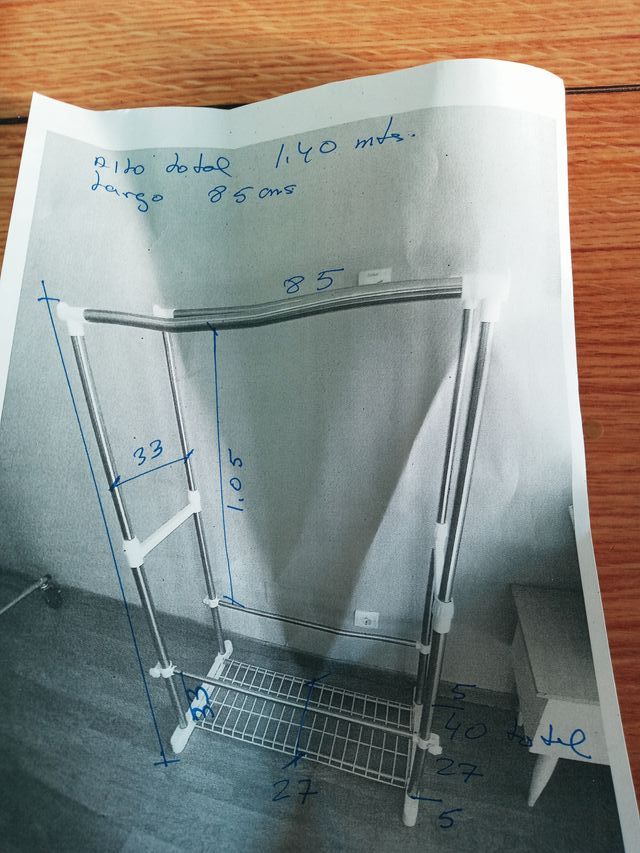 Alto total 1.40 mts.
Largo 85 cms
85
33
1.05
33
5
40 total
27
27
5